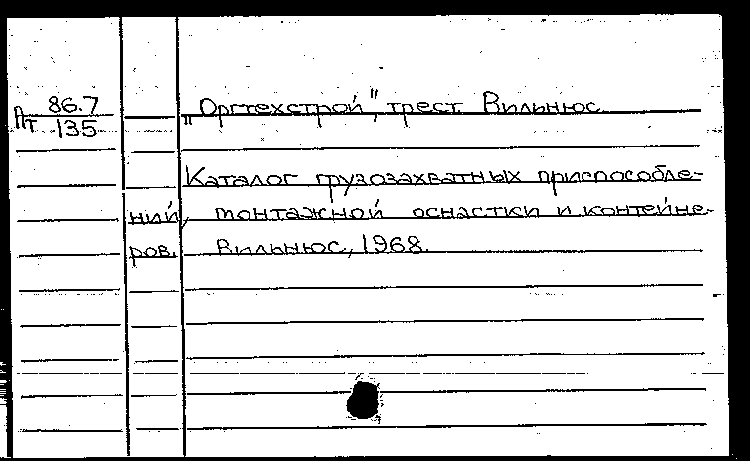 86.7
Пт 135
„Оргтехстрой", трест. Вильнюс
Каталог грузозахватных приспособле-
ний, монтажной оснастки и контейне-
ров. Вильнюс, 1968.